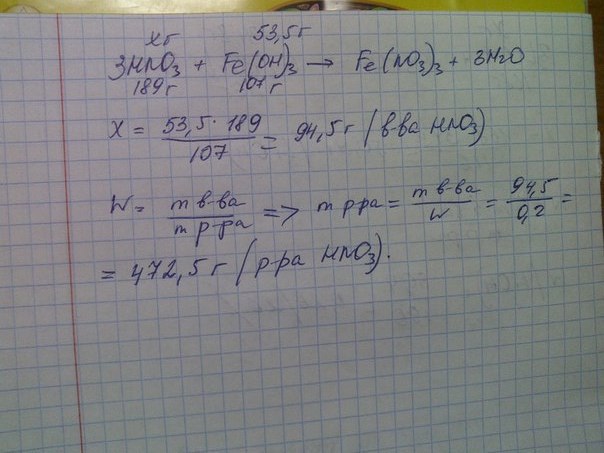 x г 53,5 г
3HNO₃ + Fe(OH)₃ → Fe(NO₃)₃ + 3H₂O
189 г 107 г
X = 53,5 · 189 / 107 = 94,5 г (в-ва HNO₃)
W = m в-ва / m р-ра => m р-ра = m в-ва / W = 94,5 / 0,2 =
= 472,5 г (р-ра HNO₃).